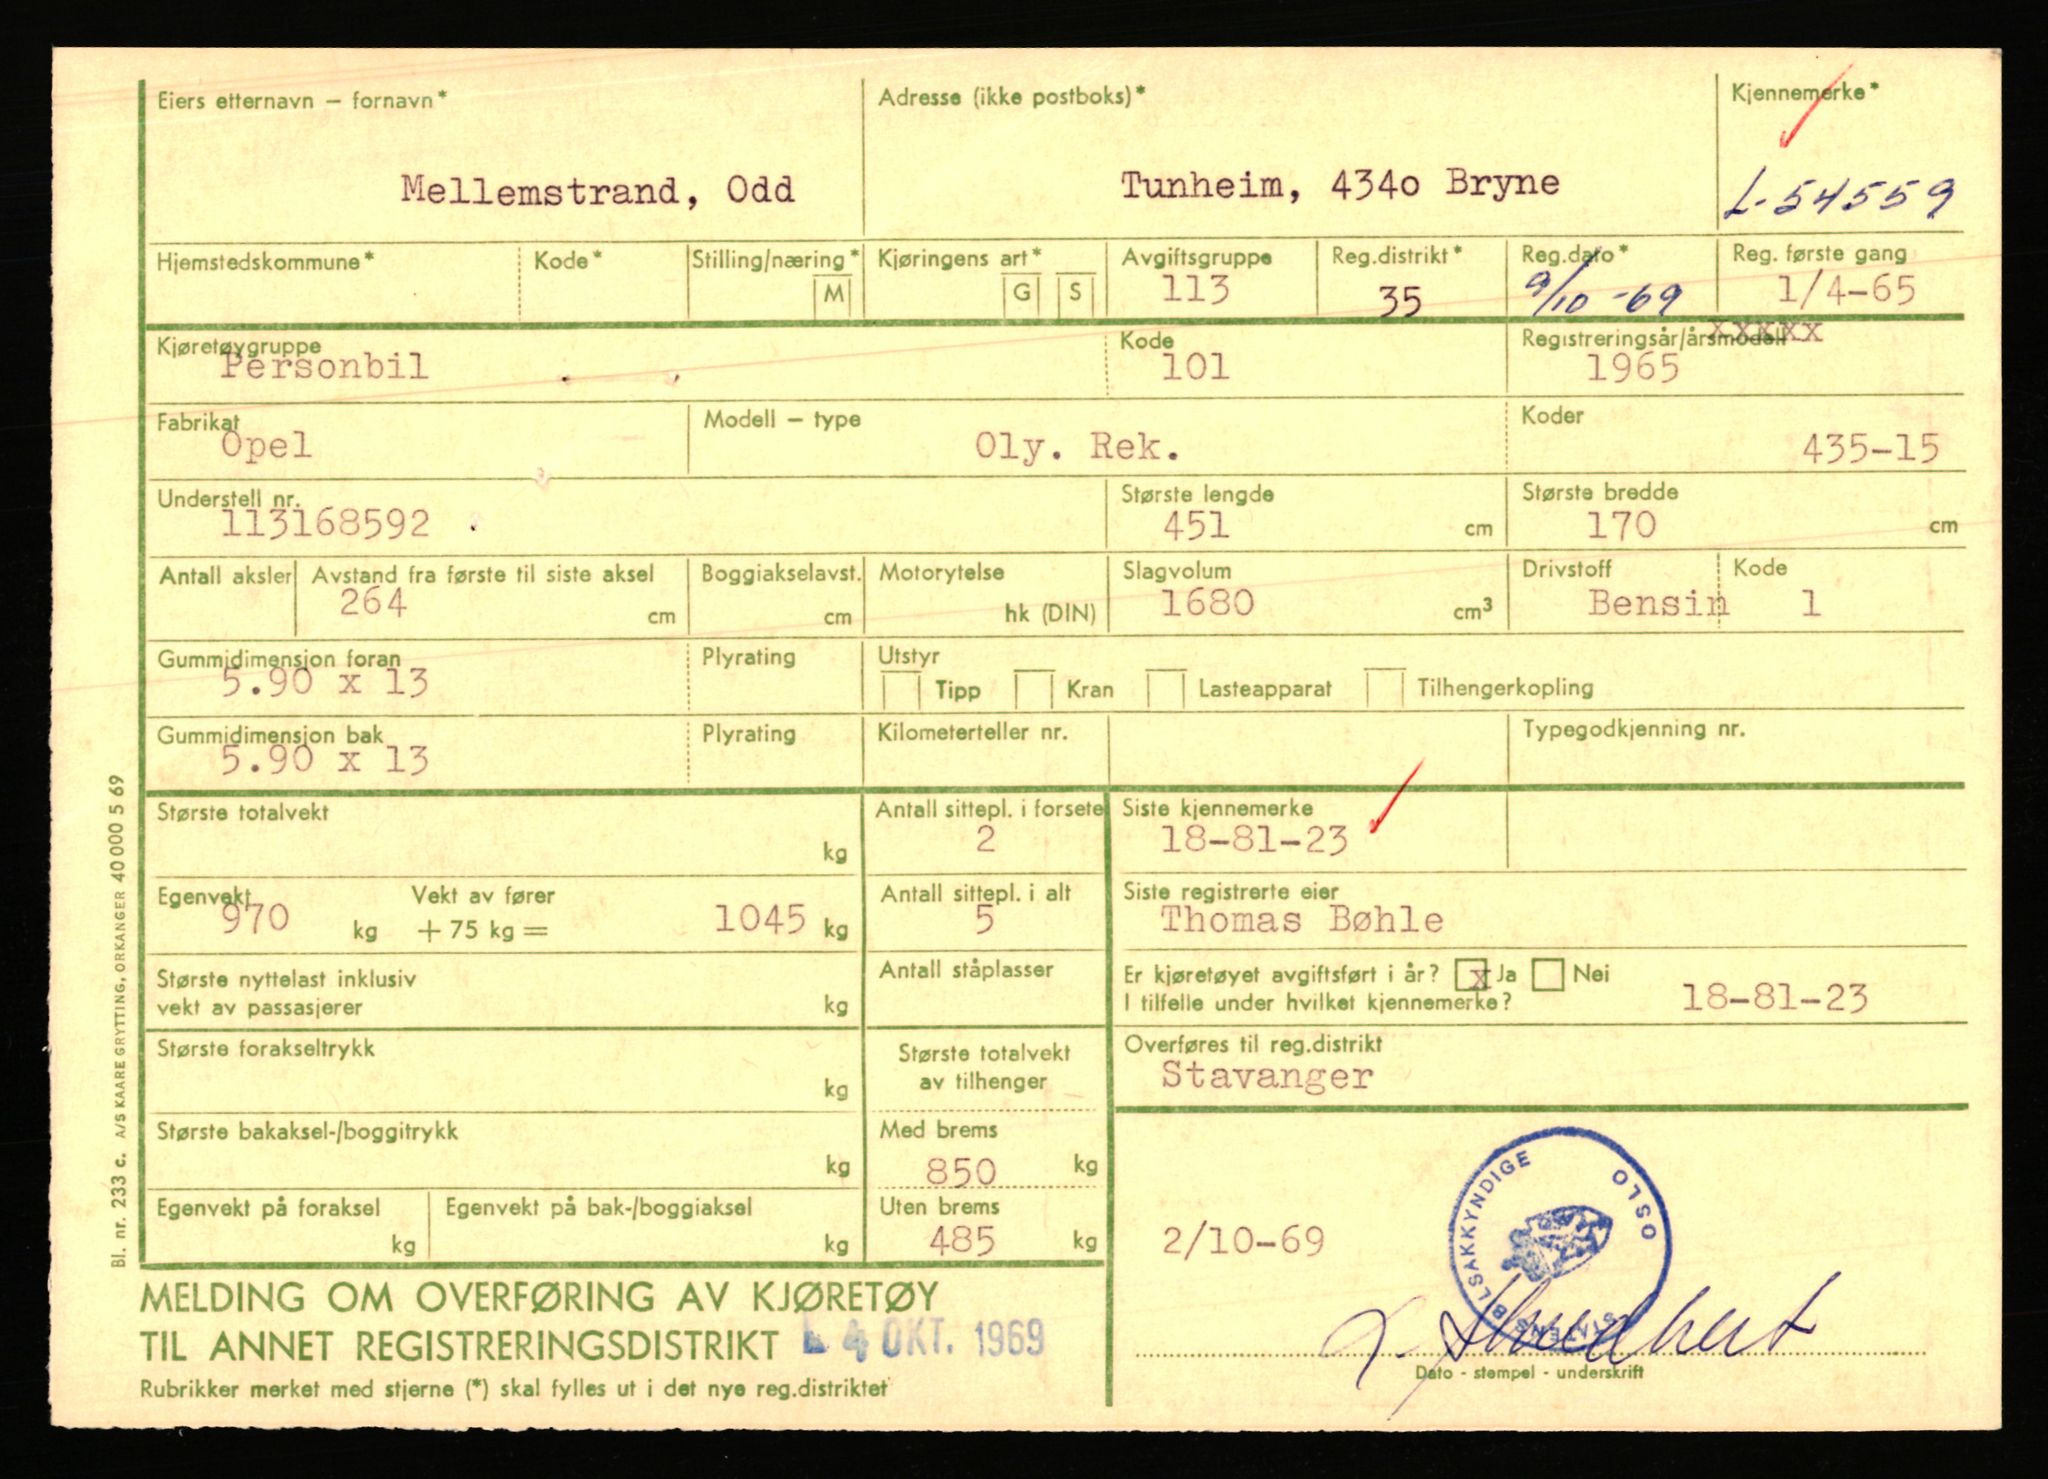 Eiers etternavn – fornavn*
Adresse (ikke postboks)*
Kjennemerke*
Mellemstrand, Odd
Tunheim, 4340 Bryne
L-54559
Hjemstedskommune*
Kode*
Stilling/næring*
M
Kjøringens art*
G
S
Avgiftsgruppe
113
Reg.distrikt*
35
Reg.dato*
9/10-69
Reg. første gang
1/4-65
Kjøretøygruppe
Personbil
Kode
101
Registreringsår/årsmodell
xxxxx
1965
Fabrikat
Opel
Modell – type
Oly. Rek.
Koder
435-15
Understell nr.
113168592
Største lengde
451 cm
Største bredde
170 cm
Antall aksler
Avstand fra første til siste aksel
264 cm
Boggiakselavst.
cm
Motorytelse
hk (DIN)
Slagvolum
1680 cm³
Drivstoff
Bensin
Kode
1
Gummidimensjon foran
5.90 x 13
Plyrating
Utstyr
Tipp
Kran
Lasteapparat
Tilhengerkopling
Gummidimensjon bak
5.90 x 13
Plyrating
Kilometerteller nr.
Typegodkjenning nr.
Største totalvekt
kg
Antall sittepl. i forsete
2
Siste kjennemerke
18-81-23
Egenvekt
970 kg
Vekt av fører
+ 75 kg =
1045 kg
Antall sittepl. i alt
5
Siste registrerte eier
Thomas Bøhle
Største nyttelast inklusiv
vekt av passasjerer
kg
Antall ståplasser
Er kjøretøyet avgiftsført i år? x Ja Nei
I tilfelle under hvilket kjennemerke?
18-81-23
Største forakseltrykk
kg
Største totalvekt
av tilhenger
Overføres til reg.distrikt
Stavanger
Største bakaksel-/boggitrykk
kg
Med brems
850 kg
Egenvekt på foraksel
kg
Egenvekt på bak-/boggiaksel
kg
Uten brems
485 kg
2/10-69
STATENS BILSAKKYNDIGE OSLO
MELDING OM OVERFØRING AV KJØRETØY
TIL ANNET REGISTRERINGSDISTRIKT
4 OKT. 1969
Dato - stempel - underskrift
Rubrikker merket med stjerne (*) skal fylles ut i det nye reg.distriktet
Bl. nr. 233 c. A/S KAARE GRYTTING, ORKANGER 40 000 5 69